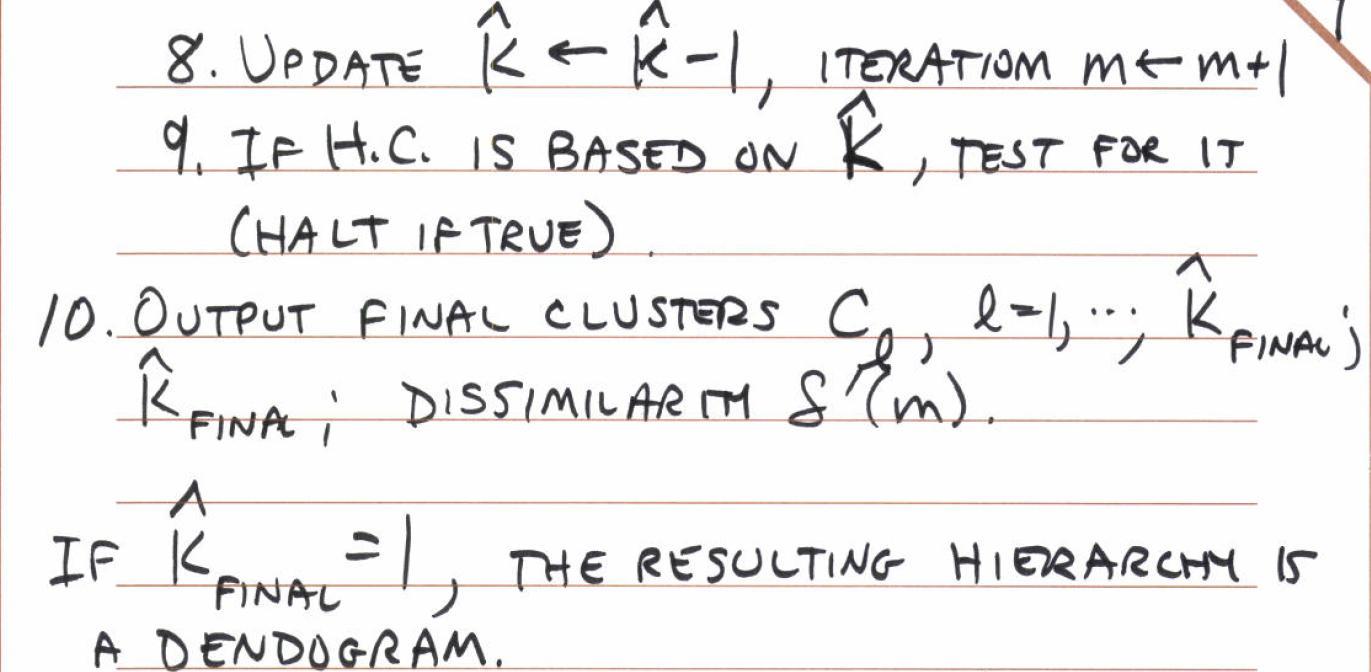 8. UPDATE K̂ ← K̂-1, ITERATION m ← m+1
9. IF H.C. IS BASED ON K̂, TEST FOR IT
(HALT IF TRUE).
10. OUTPUT FINAL CLUSTERS C_ℓ, ℓ=1, ..., K̂_FINAL;
K̂_FINAL; DISSIMILARITY δ'(m).
IF K̂_FINAL = 1, THE RESULTING HIERARCHY IS
A DENDOGRAM.